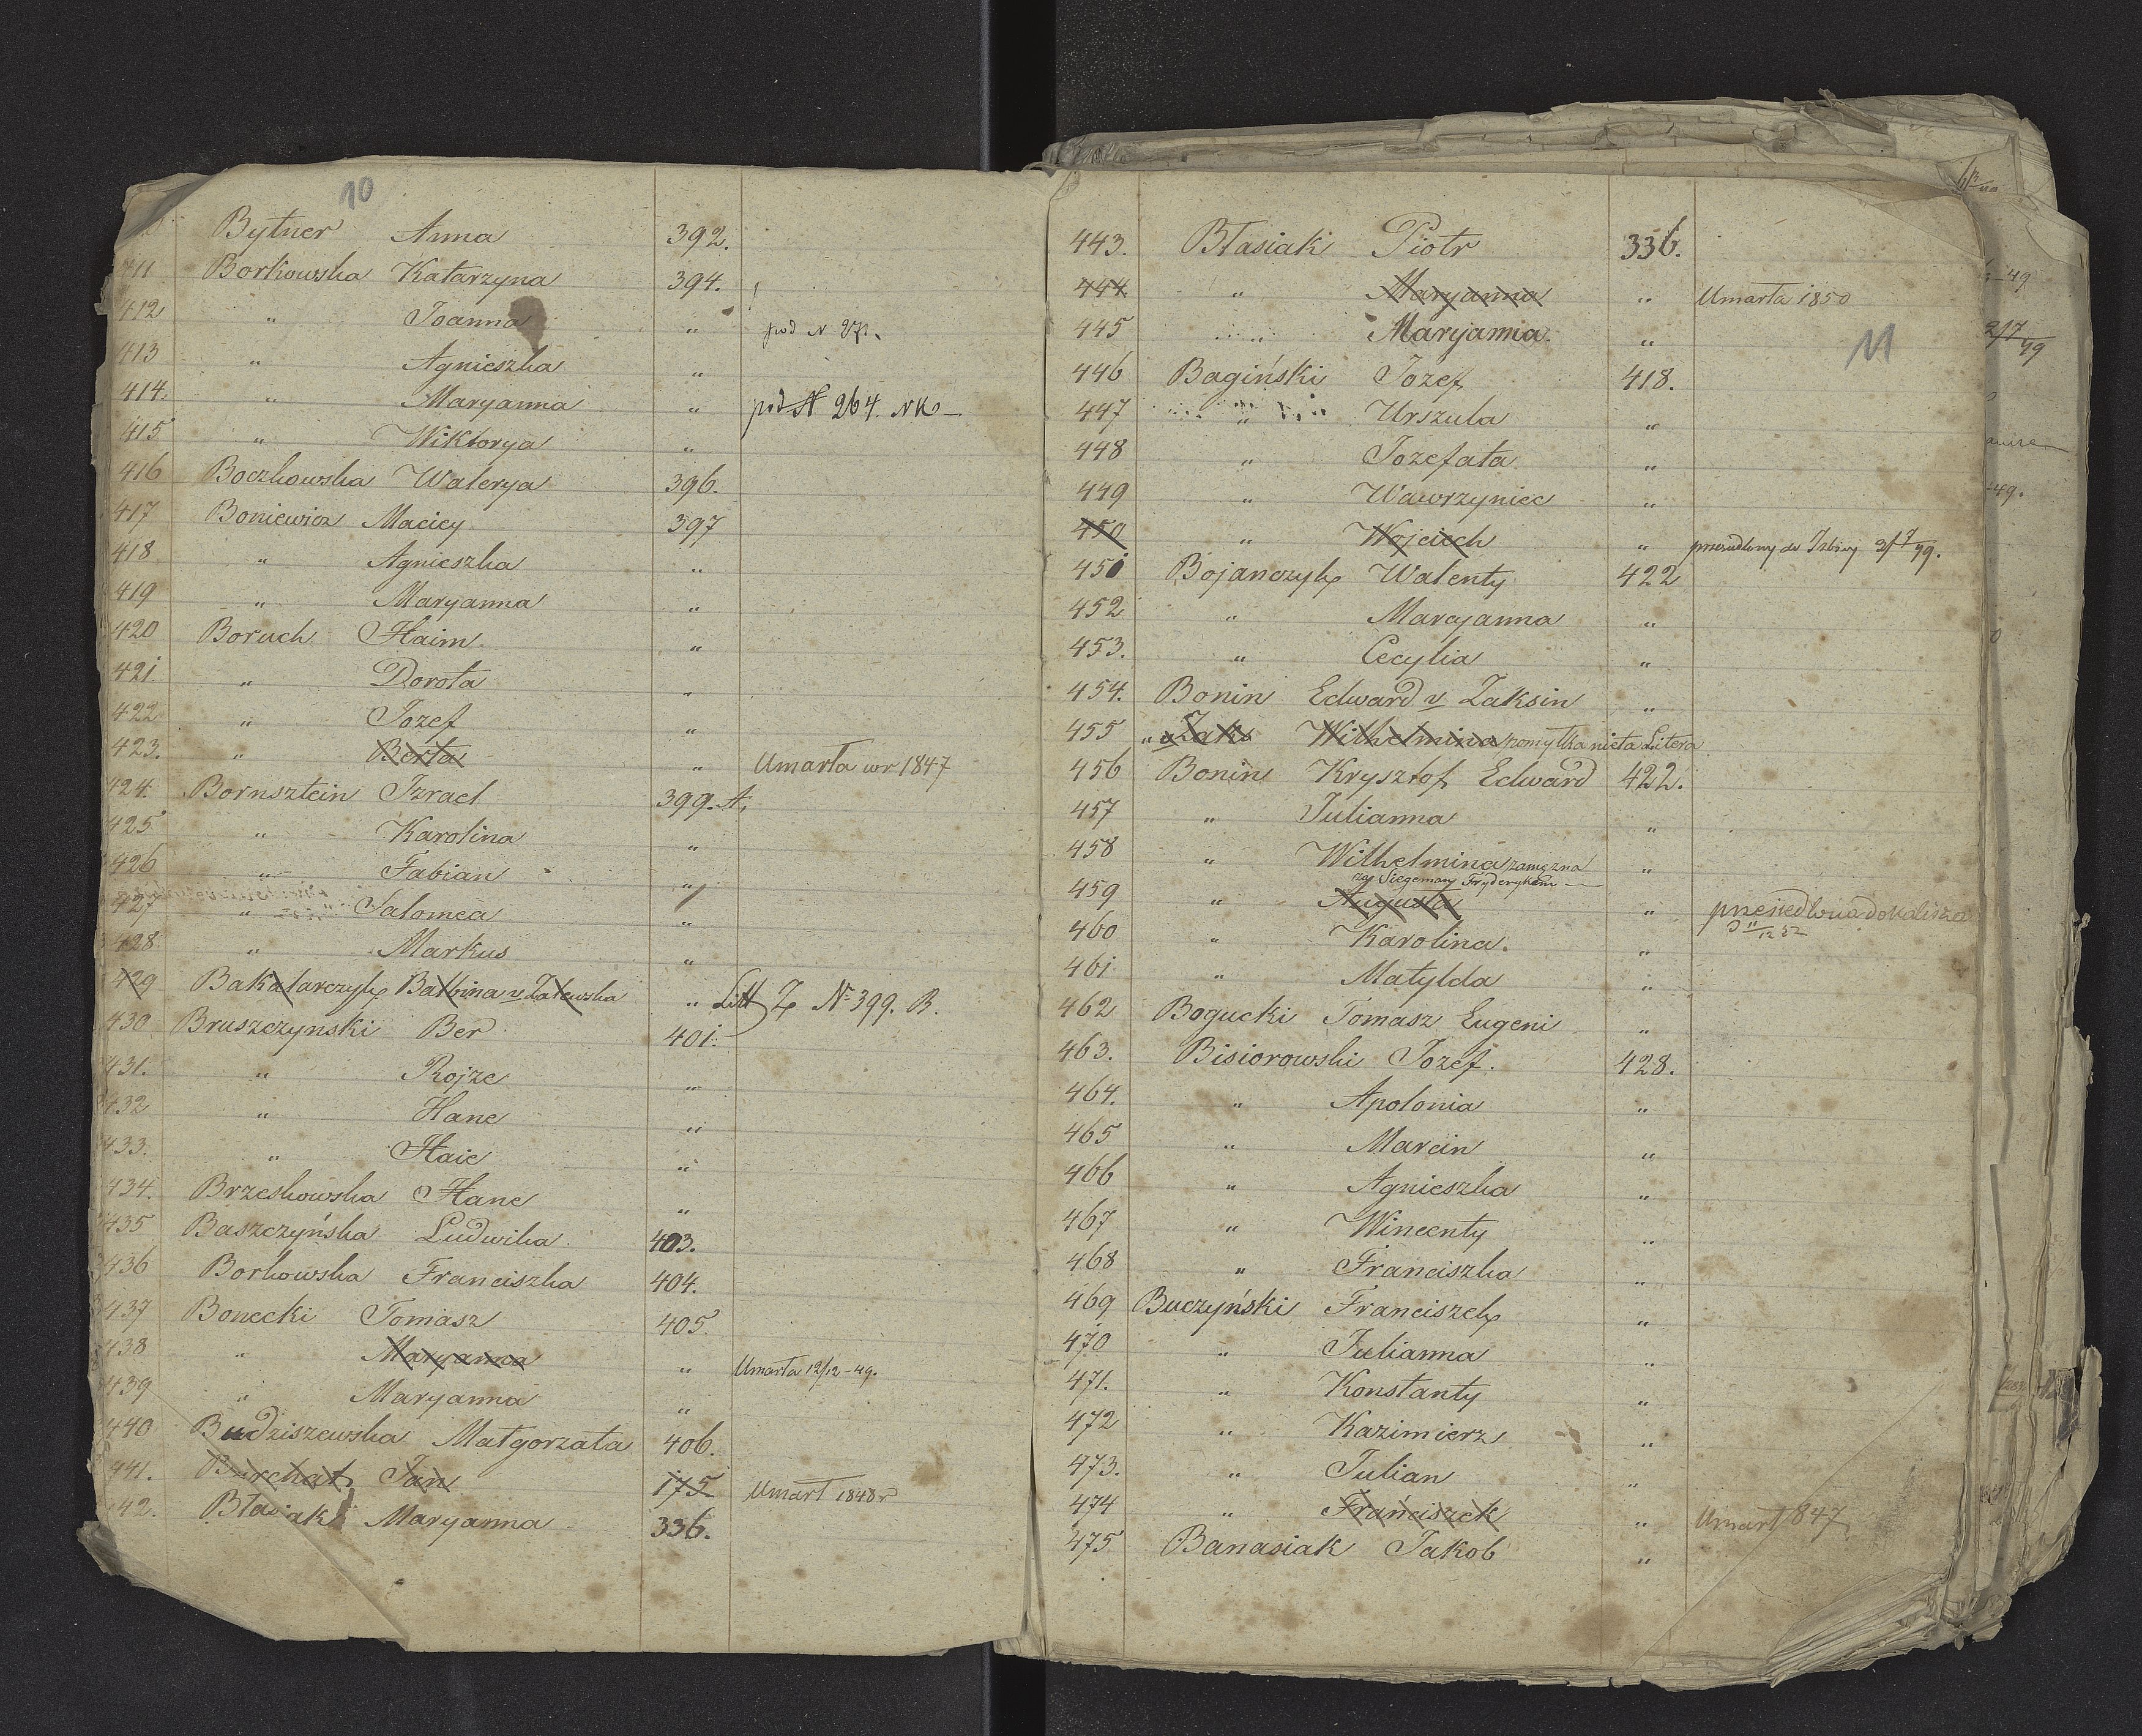 10
Bytner Anna 392.
411 Borkowska Katarzyna 394.
412 " Joanna " pod N
413 " Agnieszka "
414. " Maryanna " pod N 264. NKo
415 " Wiktorya "
416 Boczkowska Walerya 396.
417 Boniewicz Maciey 397
418 " Agnieszka "
419 " Maryanna "
420 Boruch Haim "
421. " Dorota "
422 " Jozef "
423. " Berta " Umarła wr 1847
424. Bornsztein Izrael 399. A.
425 " Karolina "
426 " Fabian "
427 " Salomea "
428 " Markus "
429 Bakalarczyk Balbina v Zalewska " Litt Z No 399. B.
430 Bruszczynski Ber 401.
431. " Rojze "
432 " Hane "
433. " Haie "
434. Brzeskowska Hane "
435 Baszczyńska Ludwika 403.
436 Borkowska Franciszka 404.
437 Bonecki Tomasz 405.
438 " Maryanna " Umarła 12/12 - 49.
439 " Maryanna "
440 Budziszewska Małgorzata 406.
441. Burchat Jan 175 Umarł 1848 r
442. Błasiak Maryanna 336.
443. Błasiak Piotr 336.
444 " Maryanna " Umarła 1850
11
445 " Maryanna "
446 Bagiński Jozef 418.
447 " Urszula "
448 " Jozefata "
449 " Wawrzyniec "
450 " Wojciech " przesiedlony do Izbicy 2/7 49.
451 Bojanczyk Walenty 422
452 " Maryanna "
453. " Cecylia "
454. Bonin Edward v Zaksin "
455 " v Zaks Wilhelmina pomyłka nie ta Litera
456 Bonin Krysztof Edward 422.
457 " Julianna "
458 " Wilhelmina zamężna "
za Siegeman Fryderykem
459 " Augusta " przesiedlona do Kalisza
460 " Karolina. "
461 " Matylda "
462 Bogucki Tomasz Eugeni "
463. Bisiorowski Jozef. 428.
464. " Apolonia "
465 " Marcin "
466 " Agnieszka "
467 " Wincenty "
468 " Franciszka "
469 Buczyński Franciszek "
470 " Julianna "
471. " Konstanty "
472 " Kazimierz "
473. " Julian "
474 " Franciszek " Umarł 1847
475 Banasiak Jakob "